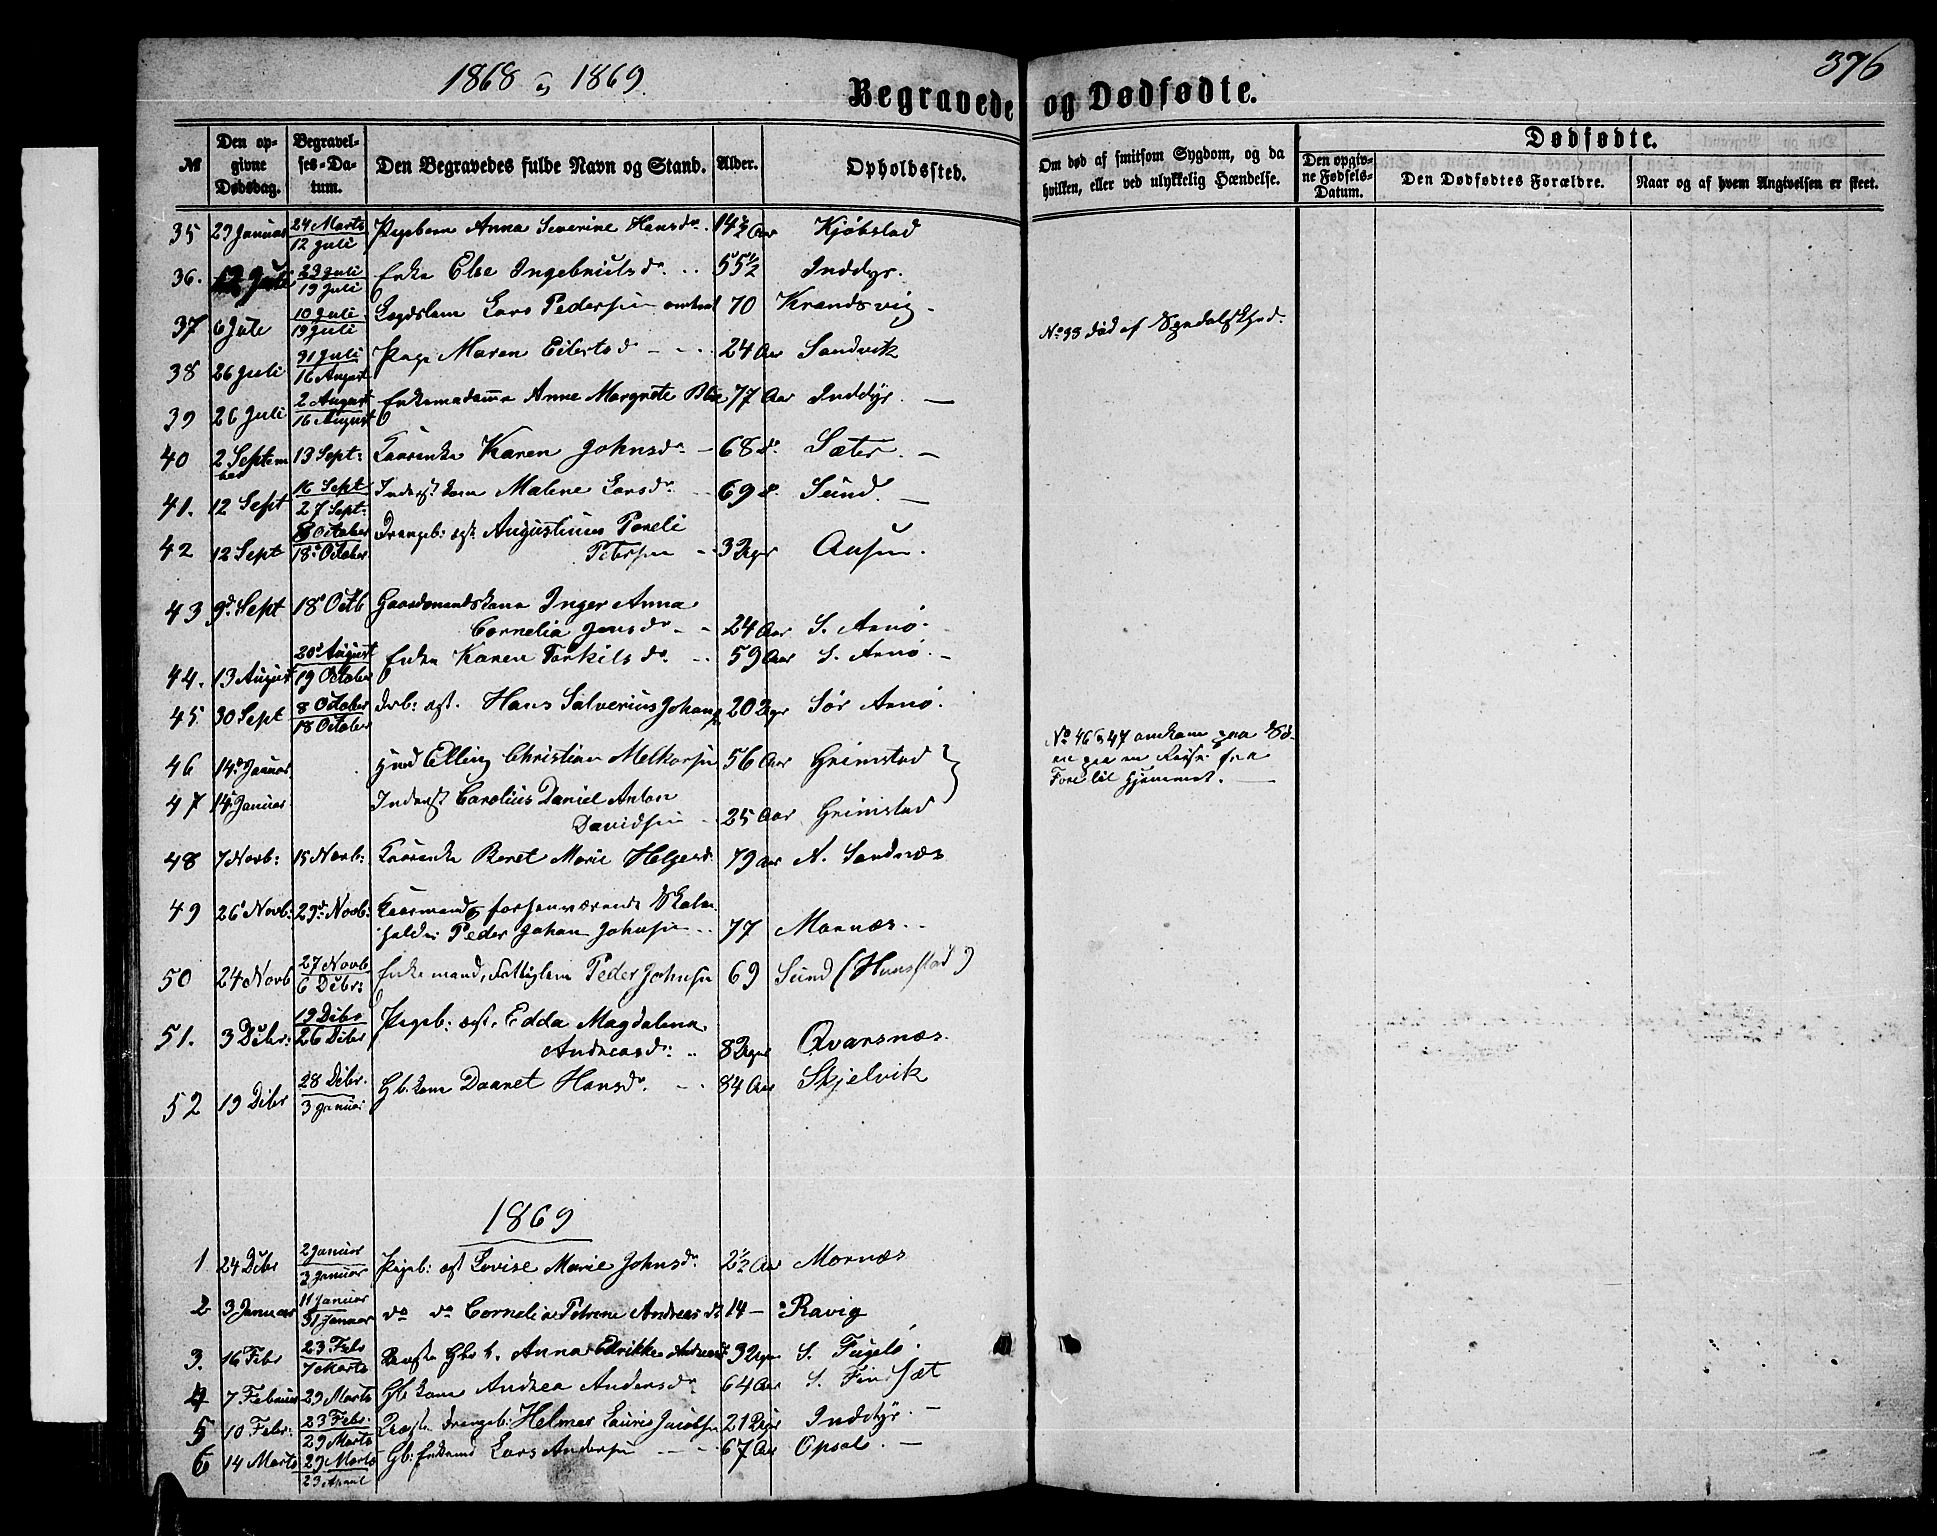 1868 og 1869.
376
Begravede og Dødfødte.
№
Den opgivne Dødsdag.
Begravelses-Datum.
Den Begravedes fulde Navn og Stand.
Alder.
Opholdssted.
Om død af smitsom Sygdom, og da hvilken, eller ved ulykkelig Hændelse.
Dødfødte.
Den opgivne Fødsels-Datum.
Den Dødfødtes Forældre.
Naar og af hvem Angivelsen er skeet.
35 29 Januar 24 Marts 12 Juli Pigebarn Anna Severine Hansdr. 14 1/2 Aar Kjøbstad
36. 12 Juli 19 Juli Enke Else Ingebrictsdr. 55 1/2 Inddyr.
37 6 Juli 10 Juli 19 Juli Lægdslem Lars Pedersen omtrent 70 Krandsvig.
38 26 Juli 31 Juli 16 August Pige Maren Eilertsd 24 Aar Sandvik
39 26 Juli 2 August 16 August Enkemadamme Anne Margrete 77 Aar Inddyr.
40 2 September 13 Sept: Kaarenke Karen Johnsdr 68 do Sæter.
41. 12 Sept 16 Sept 27 Sept: Inderst kone Malene Larsdr. 69 d. Sund.
42 12 Sept 8 October 18 October Drengeb: ægte Augustinus Poreli
Petersen 3 Uger Aasen.
43 9d Sept 18d Octb Gaardmandskone Inger Anna
Cornelia Jensdr 24 Aar S. Arnø.
44. 13 August 20d August 19 October Enke Karen Torkilsdr. 59 Aar S. Arnø.
45 30 Sept 8 October 18 October Drb: ægt. Hans Salverius Johans 20 Uger Sør Arnø.
46 14d Januar Elling Christian Melkorsen 56 Aar Grimstad
47 14 Januar Inderst Carolius Daniel Anton
Davidsen 25 Aar Grimstad
48 7 Novb: 15 Novb: Kaarenke Beret Marie Helgesd: 79 Aar N. Sandnæs
49 26 Novb: 29d Novb: Kaarmand og forhenværende Skolehol
der Peder Johan Johnsen 77 Mornæs.
50 24 Novb 27 Novb 6 Debr: Enkemand, Fattiglem Peder Johnsen 69 Sund (Hunstad)
51. 3 Debr: 19 Debr 26 Debr Pigeb: ægt. Edda Magdalena
Andreasdr: 8 Uger Qvarsnæs.
52 19 Debr 28 Debr. 3 Januar Gb. kone Daaret Hansdr. 84 Aar Skjelvik
No 38 død af Syndalskhed.
No 46 og 47 omkom paa Sø-
en paa en Reise fra
Fore til Hjemmet.
1869
1 24 Debr 2 Januar 3 Januar Pigeb: ægt Lovise Marie Johnsdr. 2 1/2 Aar Mornæs
2 3 Januar 11 Januar 31 Januar do do Cornelia Petrine Andreasdr 14 Ravig
3. 16 Febr 23 Febr 7 Marts Anna Edrikke 32 Uger S. Fugelø.
4 7 Februar 29 Marts Gb. kone Andrea Andersdr 64 Aar S. Finsæt
5 10 Febr: 23 Febr: 29 Marts Uægte Drengeb: Helmer Lauris Jacobsen 21 Uger Inddyr.
6 14 Marts 29 Marts 23 April Gb: Enkemd Lars Andersen 67 Aar Opsal.